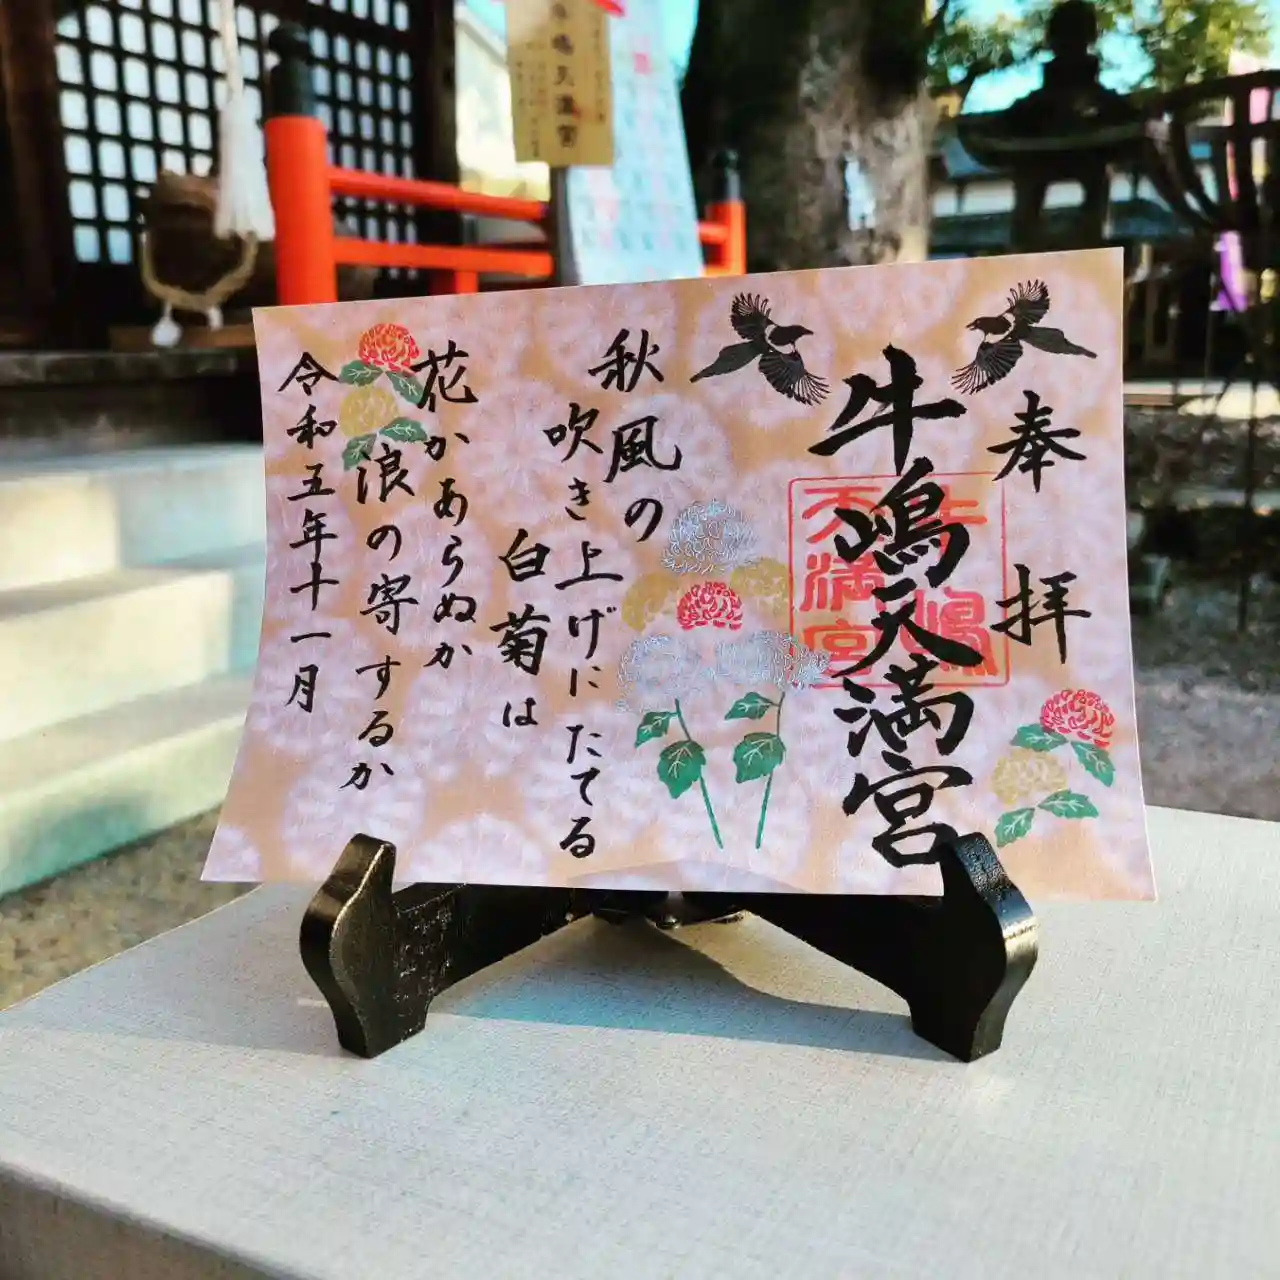 奉拝
牛嶋天満宮
牛嶋
天満宮
秋風の
吹き上げにたてる
白菊は
花かあらぬか
浪の寄するか
令和五年十一月